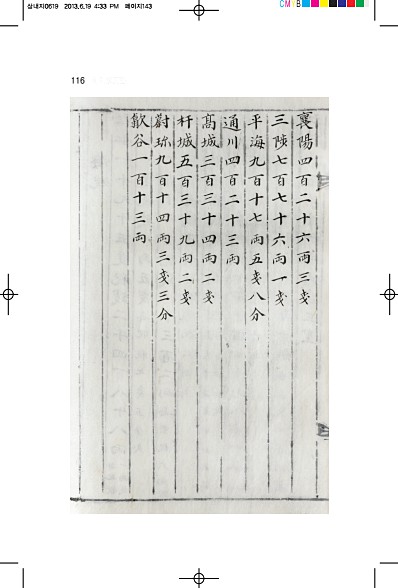 삼내지0619 2013.6.19 4:33 PM 페이지143
CMYB
116
襄陽四百二十六両三戔
三陟七百七十六両一戔
平海九百十七両五戔八分
通川四百二十三両
高城三百三十四両二戔
杆城五百三十九両二戔
蔚珍九百十四両三戔三分
歙谷一百十三両